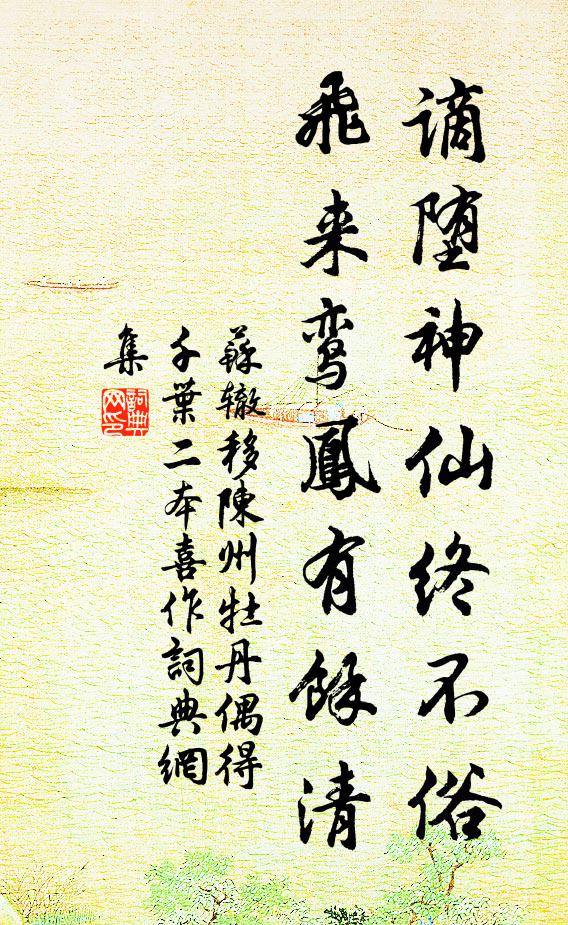 谪堕神仙终不俗
飛来鸾鳳有餘清
蘇辙移陳州牡丹偶得
千葉二本喜作詞典網
集
詞典
网印